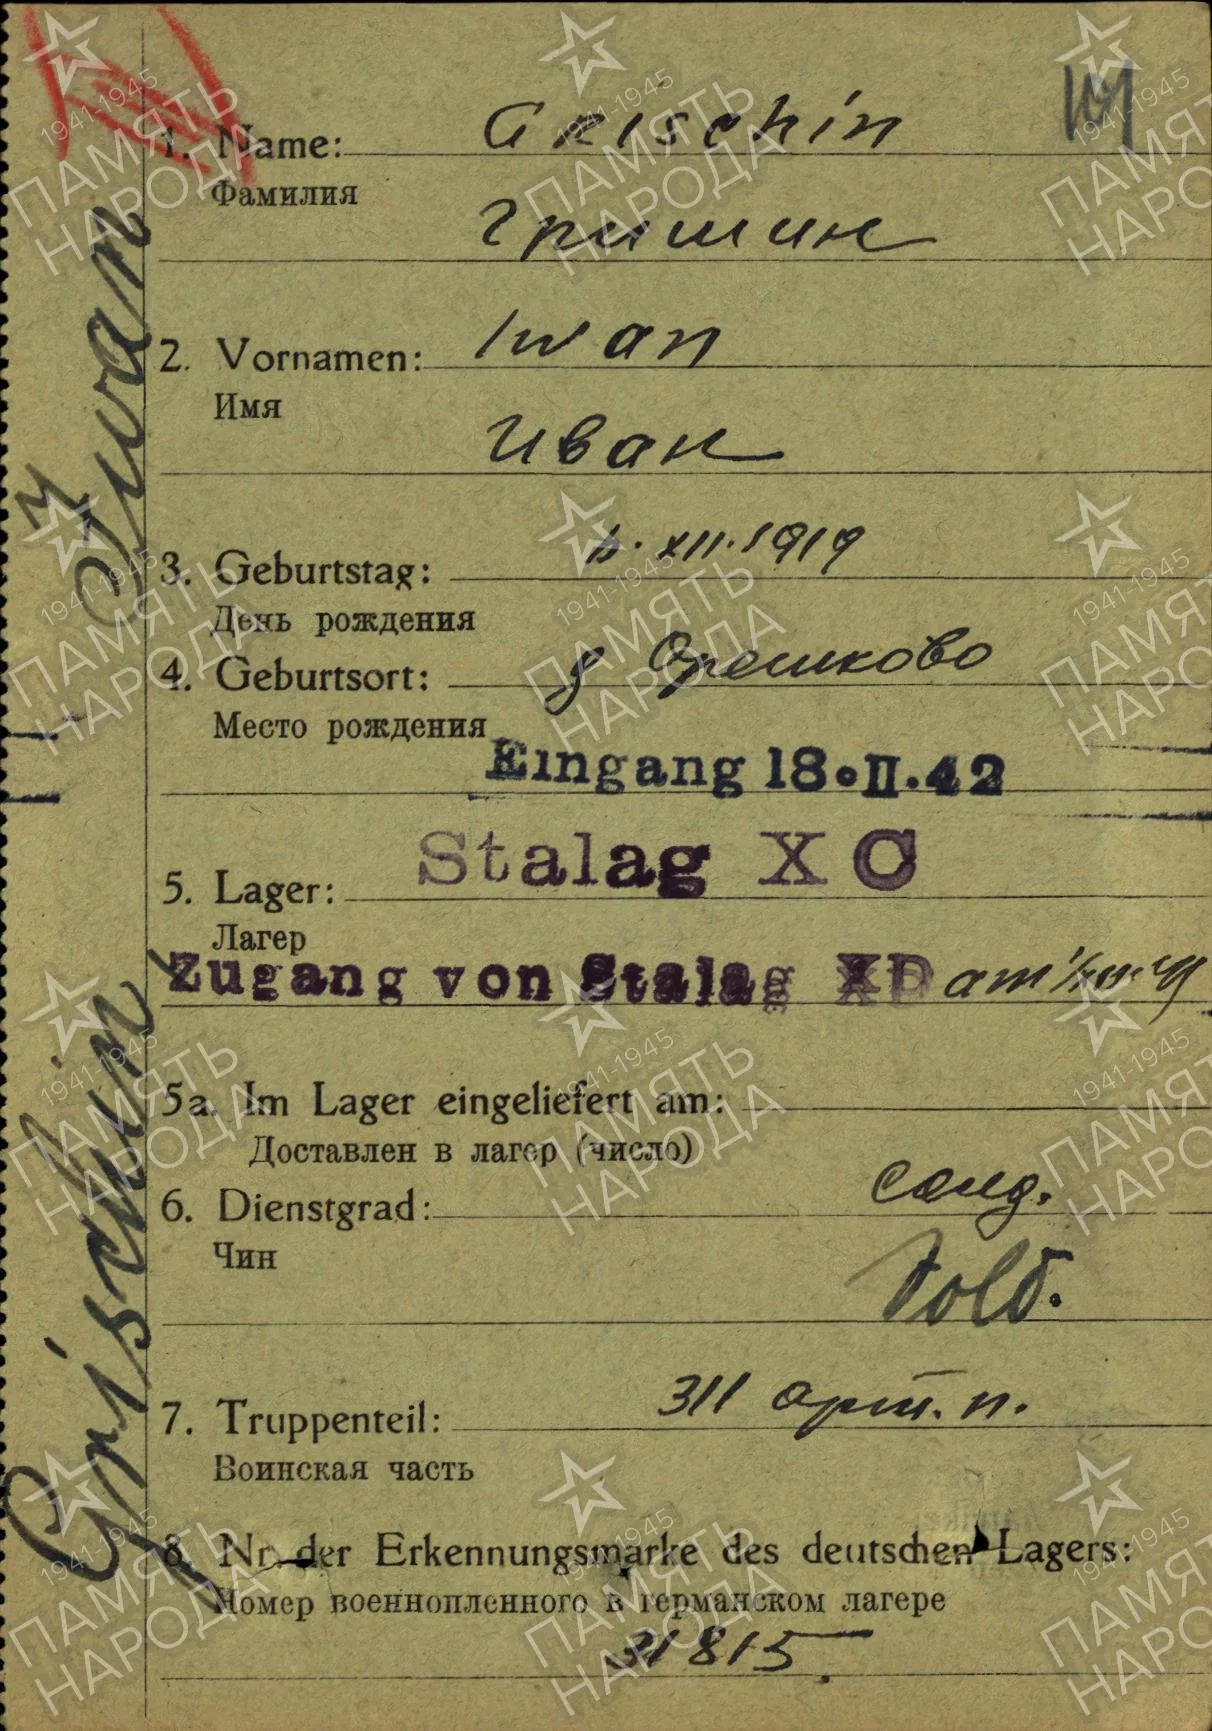 1. Name: Grischin
Фамилия
Гришин
2. Vornamen: Iwan
Имя
Иван
3. Geburtstag: XII. 1919
День рождения
4. Geburtsort: д Орешково
Место рождения
Eingang 18.II.42
Stalag X C
5. Lager:
Лагер
Zugang von Stalag XD am
5a. Im Lager eingeliefert am:
Доставлен в лагер (число)
6. Dienstgrad: солд.
Чин
Sold.
7. Truppenteil: 311 арт. п.
Воинская часть
8. Nr. der Erkennungsmarke des deutschen Lagers:
Номер военнопленного в германском лагере
31815
Grischin, Iwan
1941-1945
ПАМЯТЬ
НАРОДА